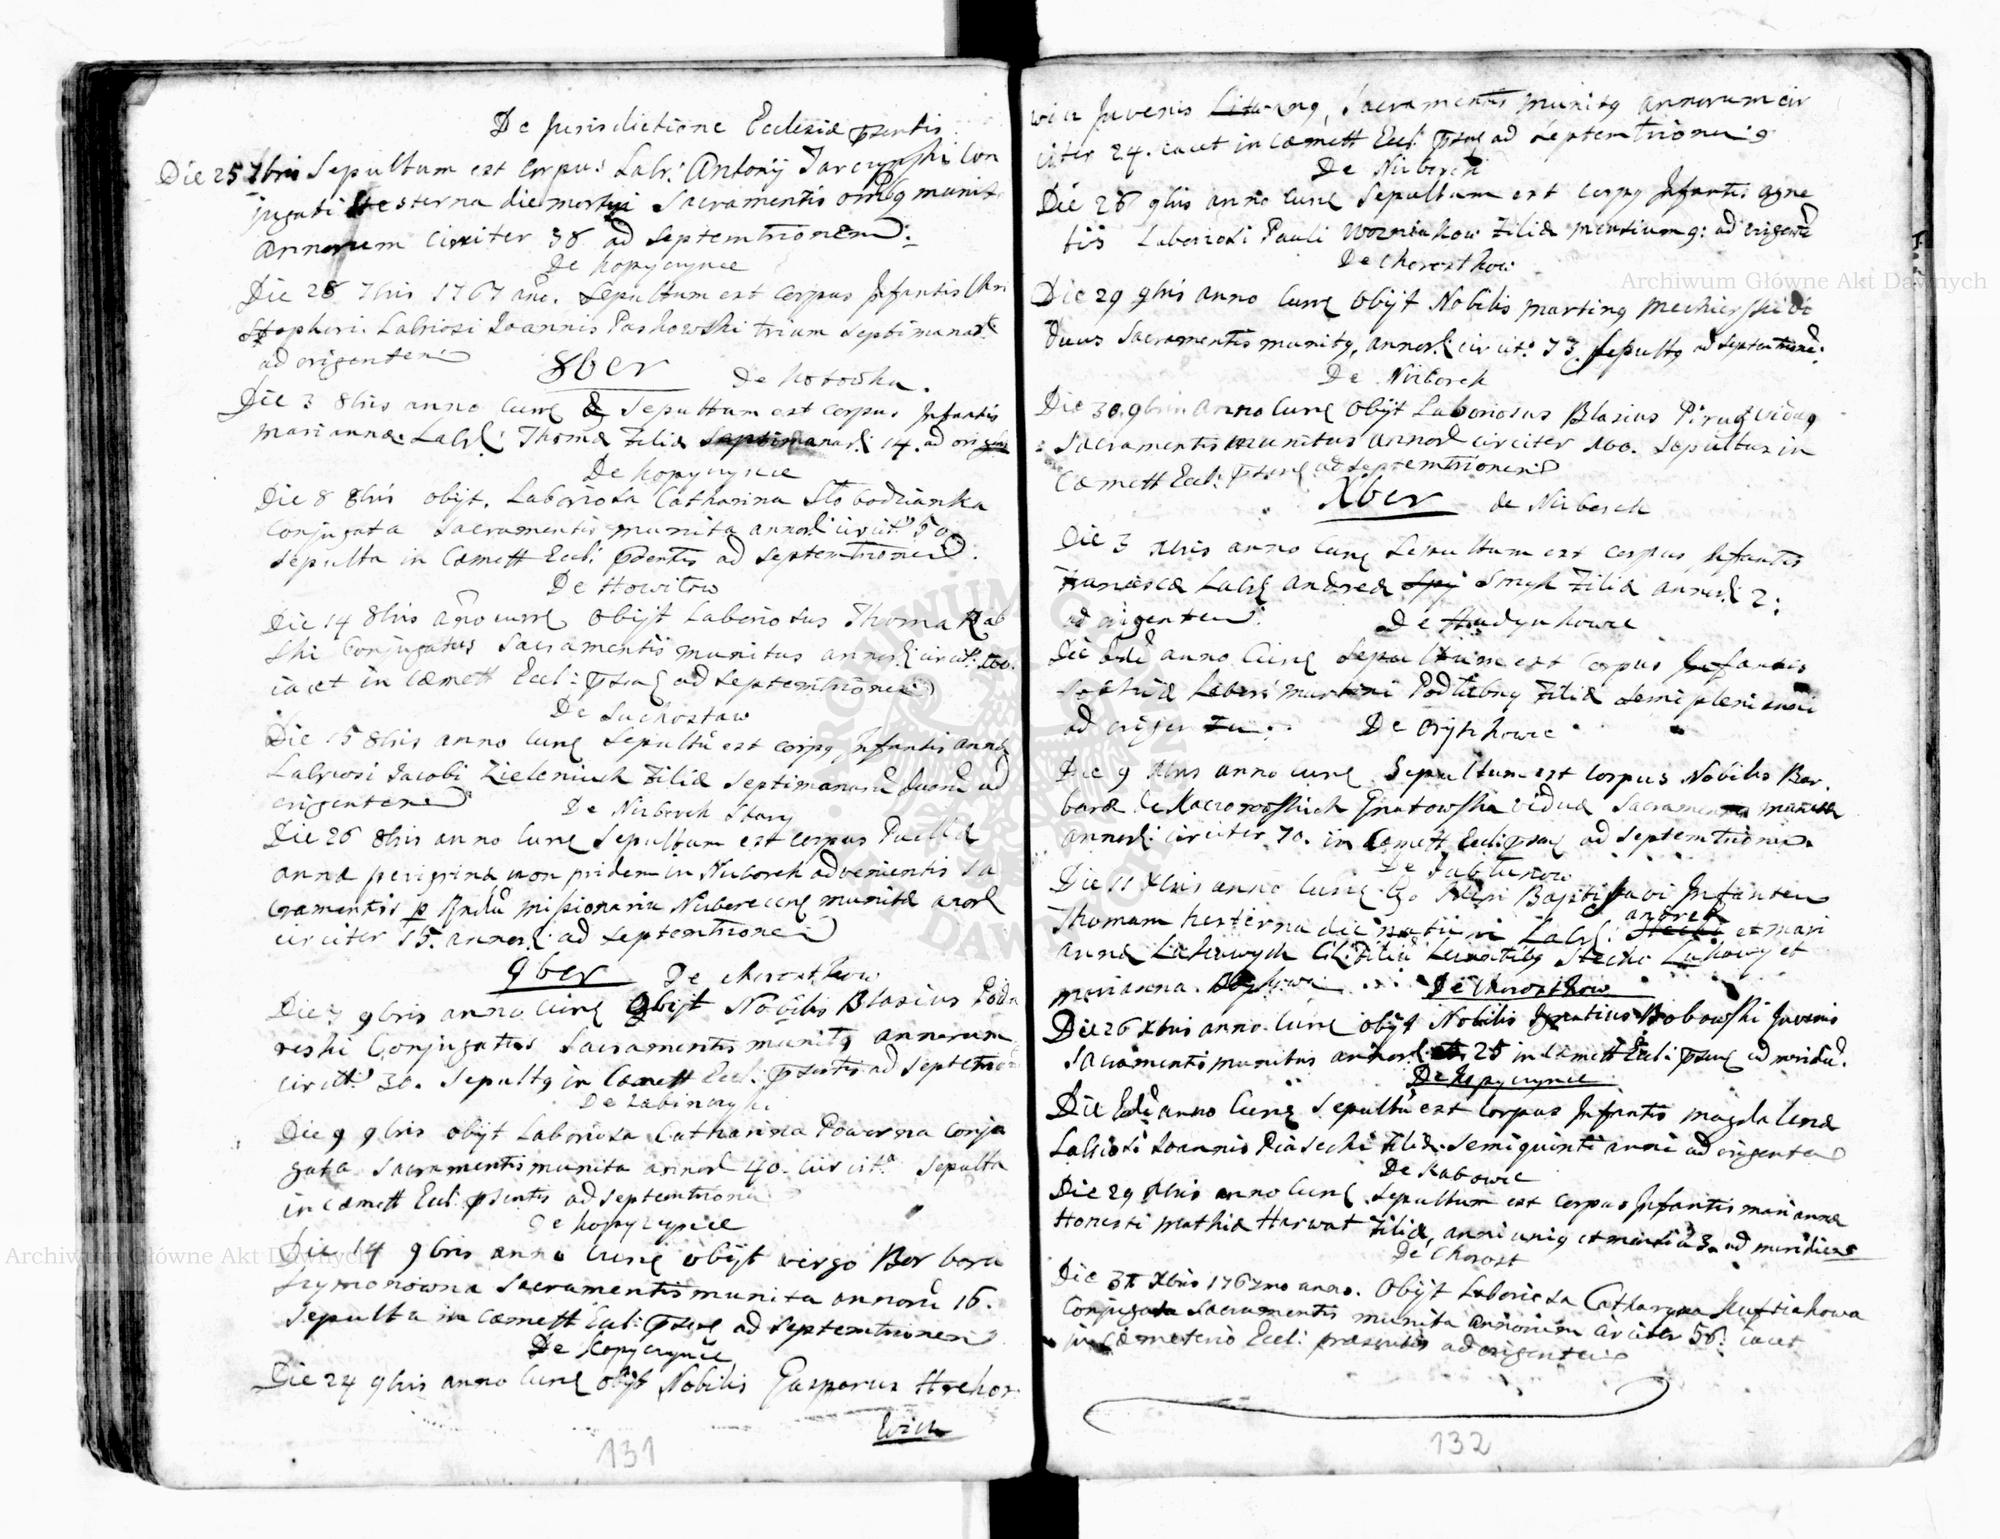 De Jurisdictione Ecclesiæ psentis
Die 25 7bris Sepultum est corpus Labr: Antonij Tarczynski Con
jugati hesterna die mortui Sacramentis omibq munit
Annorum circiter 38 ad Septemtrionem:
De Kopyczynce
Die 28 7bris 1767 ano. Sepultum est corpus Infantis Chri
stophori Labriosi Joannis Paskowski trium Septimanar:
ad origentem
8ber De Kotowka.
Die 3 8bris anno curr Sepultum est corpus Infantis
Mariannæ Labr: Thomæ Filiæ Septimanar: 14. ad orig
De Kopyczynce
Die 8 8bris obijt. Laboriosa Catharina Słobodzianka
Conjugata Sacramentis munita annor: circit: 50.
Sepulta in Cœmett Eccl: psentis ad Septemtrionem.
De Howiłow
Die 14 8bris anno curr Obijt Laboriosus Thoma Rab
ski Conjugatus Sacramentis munitus annor: circit: 100.
iacet in Cœmett Eccl: psent ad Septemtrionem
De Suchostaw
Die 15 8bris anno curr Sepultū est corpq Infantis Annæ
Labriosi Jacobi Zieleniuk Filiæ Septimanarū duarū ad
origentem
De Niżborck Stary
Die 26 8bris anno curr Sepultum est corpus Puellæ
Annæ peregrinæ non pridem in Niżborck advenientis Sa
cramentis p Rndū Missionariū munitæ
circiter 15. annor: ad Septemtrionem
9ber De Chorostkow
Die 7 9bris anno curr Obijt Nobilis Blasius Pod
reski Conjugatus Sacramentis munitq annorum
circit: 30. Sepultq in Cœmett Eccl: psentis ad Septemtrio
De Zabinczyki
Die 9 9bris obijt Laboriosa Catharina Powerna conju
gata Sacramentis munita annor 40. circit: Sepulta
in Cœmett Eccl: psentis ad Septemtrionem
De Kopyczynce
Die 14 9bris anno curr obijt virgo Barbara
Szymonowna Sacramentis munita annorū 16.
Sepulta in Cœmett Eccl: psent ad Septemtrionem
De Kopyczynce
Die 24 9bris anno curr obijt Nobilis Gasparus Hrehor
wicz
131
wicz Juvenis Sacramentis munitq annorum cir
citer 24. iacet in Cœmett Eccl: psent ad Septemtrionem
De Niżborck
Die 26 9bris anno curr Sepultum est corpq Infantis Agne
tis Laboriosi Pauli Wozniakow Filiæ mensium 9: ad origent
De Chorostkow
Die 29 9bris anno curr Obijt Nobilis Martinq Mechierski Vi
duus Sacramentis munitq, annor: circit: 73. Sepultq ad Septemtrione:
De Niżborck
Die 30. 9bris Anno curr Obijt Laboriosus Blasius Piruq viduq
Sacramentis munitus annor circiter 100. Sepultus in
Cœmett Eccl: psent ad Septemtrionem
Xber de Niżborck
Die 3 Xbris anno curr Sepultum est corpus Infantis
Franciscæ Labr Andreæ Smyk Filiæ annor: 2:
ad origentem
De Hadynkowce
Die Eadē anno Curr Sepultum est corpus Infantis
Sophiæ Labori Martini Podlubny Filiæ Semi pleni anni
ad origentem.
De Oryszkowce
Die 9 Xbris anno curr Sepultum est Corpus Nobilis Bar
baræ de Gnatowska viduæ Sacramentis munitæ
annor: circiter 70. in Cœmett Eccl: psent ad Septemtrionem
De Jabłunow
Die 11 Xbris anno Curr Ego Baptisavi Infantem
Thomam hesterna die natū Labr: Andreæ et Mari
annæ Lesko Filiū Levantibq Stecko et
Marianna
De Chorostkow
Die 26 Xbris anno curr obijt Nobilis Ignatius Bobowski Juvenis
Sacramentis munitus annor: 25 in Cœmett Eccl: psent ad meridiē.
De Kopyczynce
Die Eadē anno Curr Sepultū est Corpus Infantis Magdalenæ
Labriosi Joannis Piasecki Filiæ Semiquinti anni ad origentem
De Rakowce
Die 29 Xbris anno Curr Sepultum est corpus Infantis Mariannæ
Honesti Mathiæ Harwat Filiæ, anni uniq et mensiū 3. ad meridiem
De Chorost
Die 31 Xbris 1767mo anno. Obijt Laboriosa Catharyna Kuftiakowa
Conjugata Sacramentis munita annorum circiter 56. iacet
in Cœmeterio Eccl: præsentis ad origentem
132
Archiwum Główne Akt Dawnych
Archiwum Główne Akt Dawnych